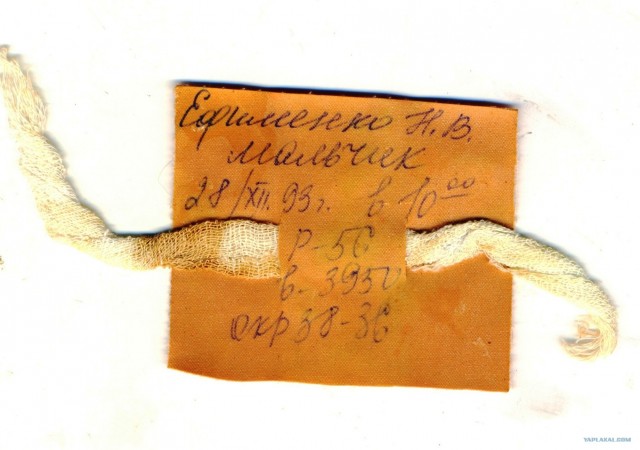 Ефименко Н.В.
мальчик
28/XII.93г. в 10⁰⁰
Р-56
в-3950
окр 38-36
YAPLAKAL.COM